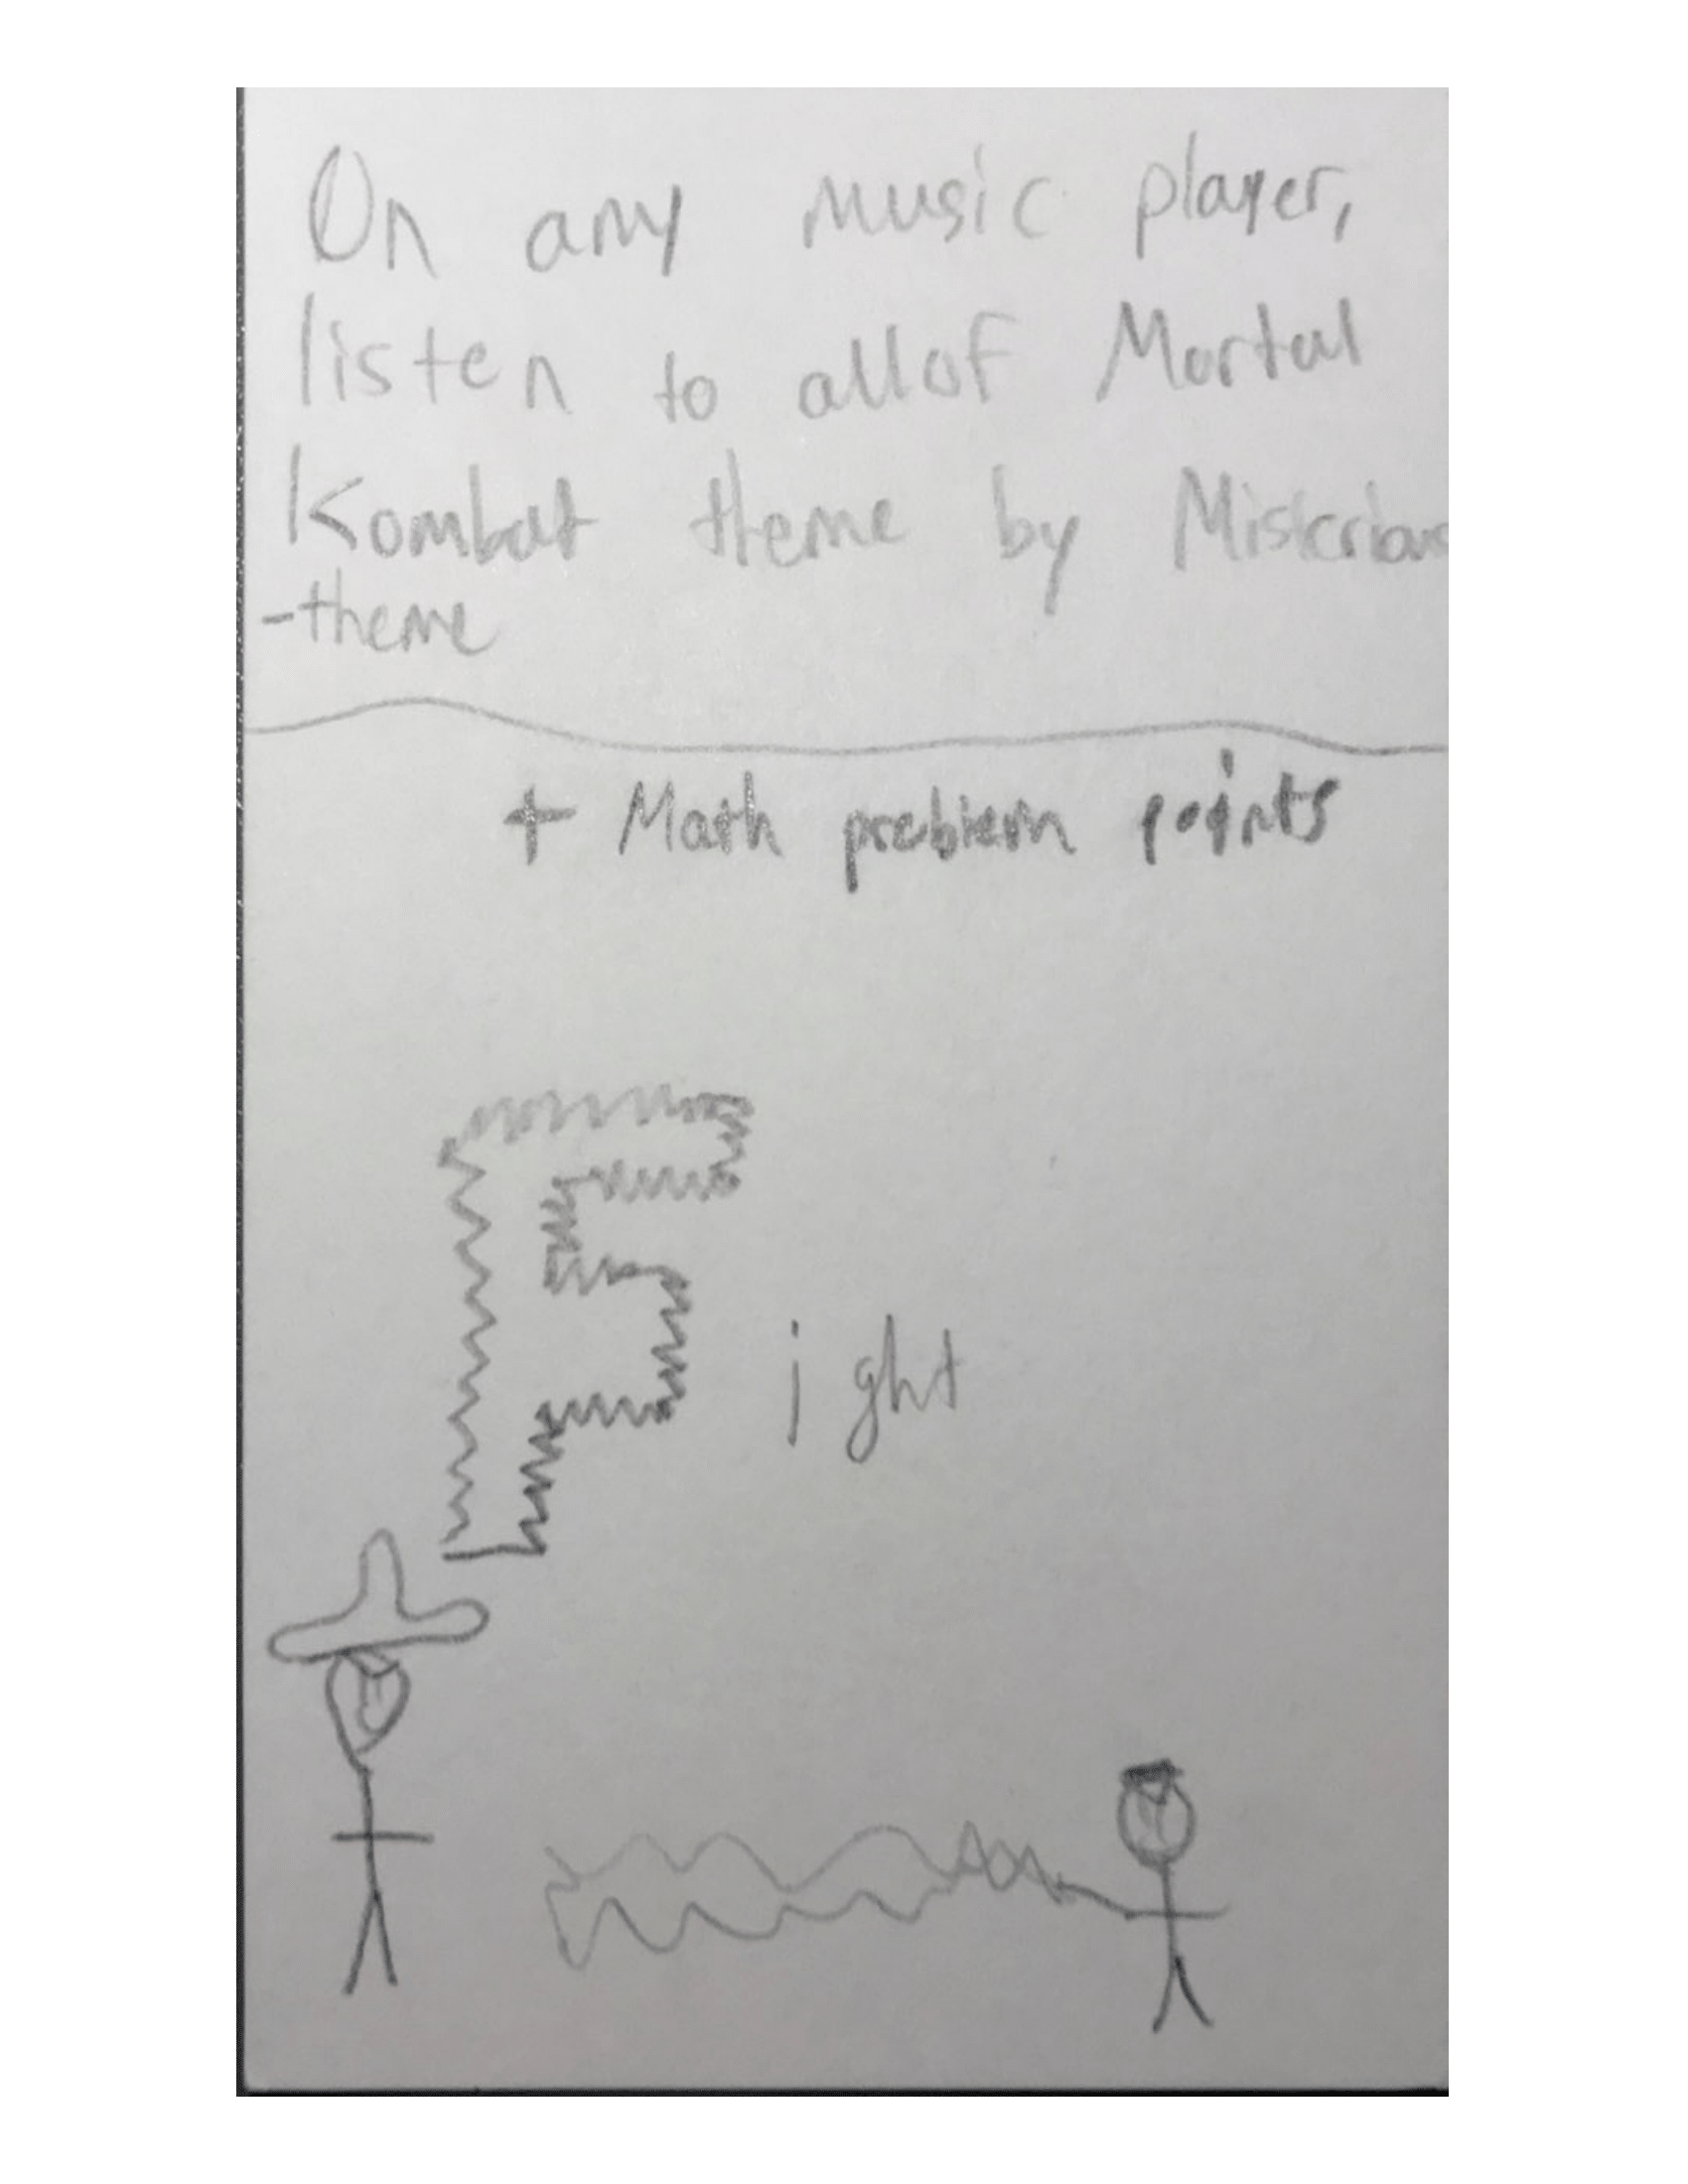 On any music player,
listen to all of Mortal
Kombat theme by
-theme
+ Math problem points
Fight